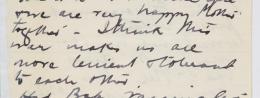 we are very happy
together - I think this
war makes us all
more lenient & tolerant
to each other
Had